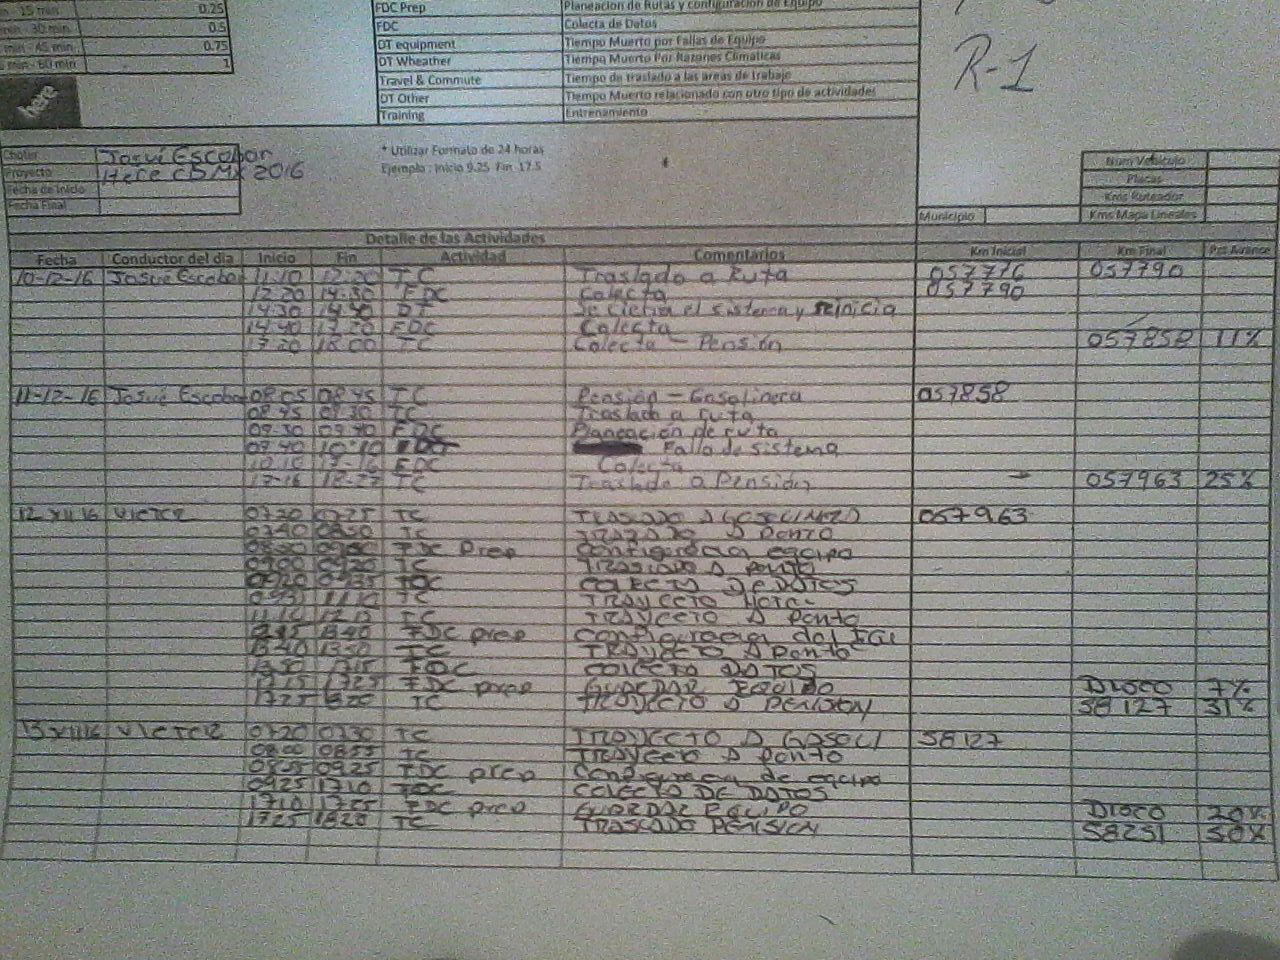 15 min 0.25
min - 30 min 0.5
min - 45 min 0.75
min - 60 min 1
FDC Prep Planeacion de Rutas y configuracion de Equipo
FDC Colecta de Datos
DT equipment Tiempo Muerto por Fallas de Equipo
DT Wheather Tiempo Muerto Por Razones Climaticas
Travel & Commute Tiempo de traslado a las areas de trabajo
DT Other Tiempo Muerto relacionado con otro tipo de actividades
Training Entrenamiento
R-1
here
Chofer Josué Escobar
Proyecto Here CDMX 2016
Fecha de Inicio
Fecha Final
* Utilizar Formato de 24 horas
Ejemplo : Inicio 9.25 Fin 17.5
Num Vehiculo
Placas
Kms Ruteador
Municipio Kms Mapa Lineales
Detalle de las Actividades
Fecha Conductor del dia Inicio Fin Actividad Comentarios Km Inicial Km Final Pct Avance
10-12-16 Josué Escobar 11:10 12:20 TC Traslado a Ruta 057776 057790
12:20 14:30 FDC Colecta 057790
14:30 14:40 DT Se cierra el sistema y reinicia
14:40 17:20 FDC Colecta
17:20 18:00 TC Colecta - Pensión 057858 11%
11-12-16 Josué Escobar 08:05 08:45 TC Pensión - Gasolinera 057858
08:45 09:30 TC Traslado a ruta
09:30 09:40 FDC Planeación de ruta
09:40 10:10 Falla de sistema
10:10 17-16 FDC Colecta
17-16 18-27 TC Traslado a Pensión 057963 25%
12 XII 16 VICTOR 0720 0725 TC 057963
0740 0850 TC A PONTO
FDC Prep equipo
0900 0920 TC TRASLADO A PONTO
0920 0935 FDC COLECTA DE DATOS
0935 1110 TC TRAYECTO
1110 TC TRAYECTO A Ponto
1340 FDC prep
1340 1350 TC TRAYECTO A Ponto
1350 1715 FDC COLECTA DATOS
1715 1725 FDC prep GUARDAR 7%
1725 1820 TC TRAYECTO A PENSION 58127 31%
13 XII 16 VICTOR 0720 0730 TC TRAYECTO A GASOLI 58127
0800 0855 TC TRAYECTO A Ponto
0855 0925 FDC prep de equipo
0925 1710 FDC COLECTA DE DATOS
1710 1725 FDC prep GUARDAR EQUIPO 20%
1725 1820 TC TRASLADO PENSION 58251 50%